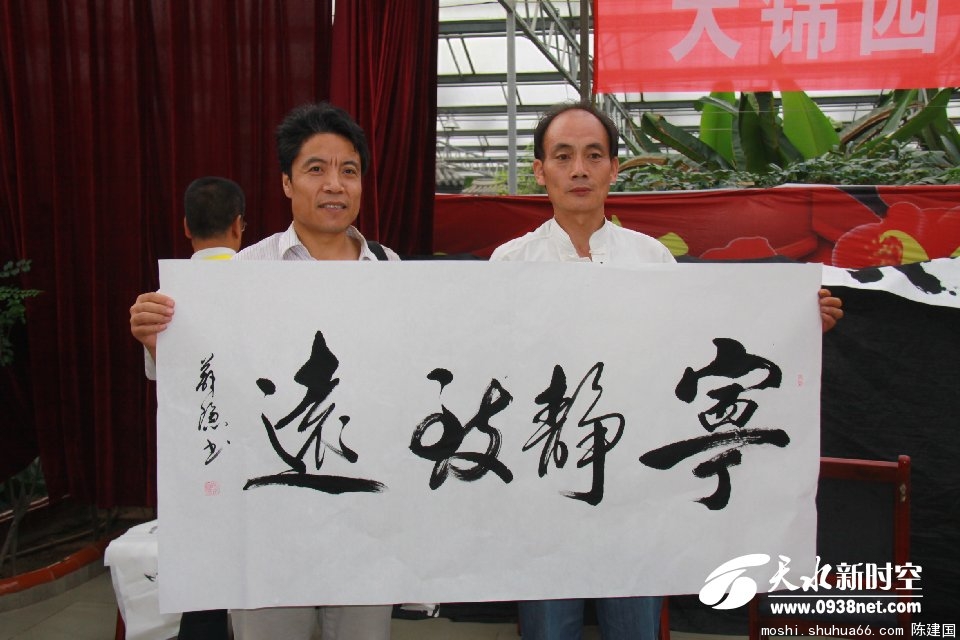 天锦四
寧静致遠
書
天水新时空
www.0938net.com
moshi.shuhua66.com 陈建国